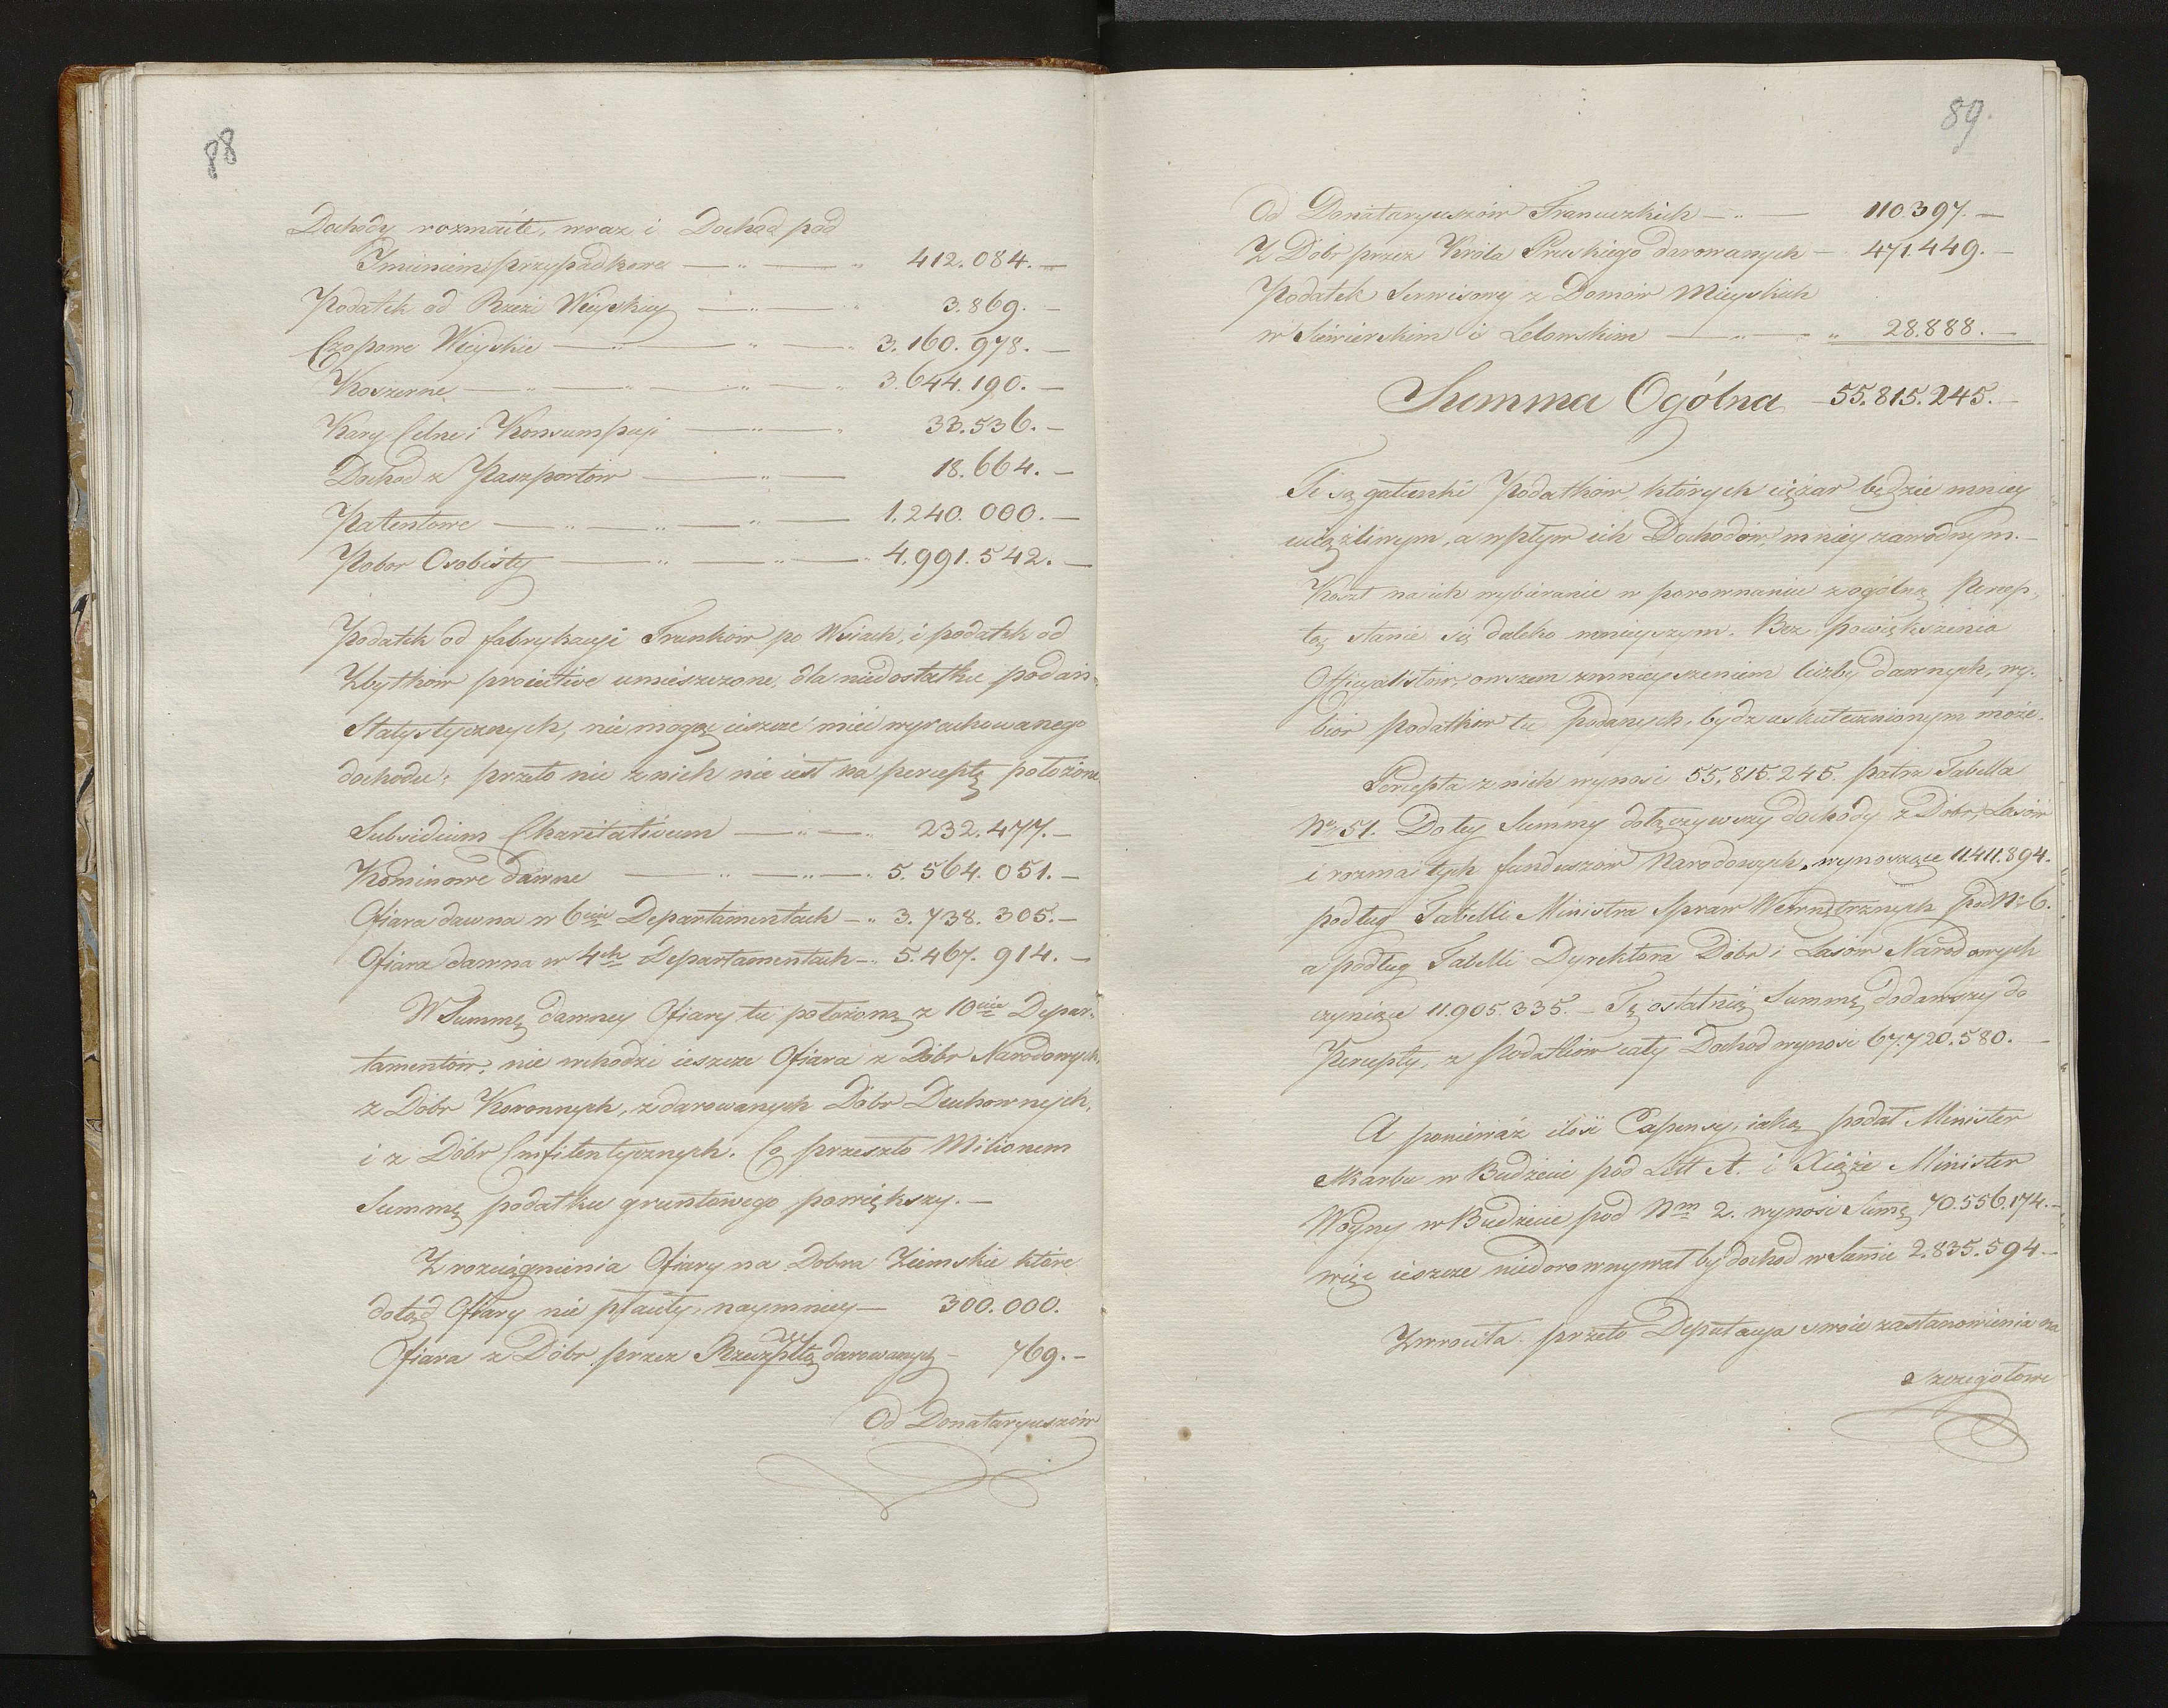 88
Dochody rozmaite, wraz i Dochod pod
Imieniem przypadkowe — " — " 412.084. —
Podatek od Rzezi Wieyskiey — " — " 3.869. —
Czopowe Wieyskie — " — " — " 3.160.978. —
Koszerne — " — " — " — " 3.644.190. —
Kary Celne i Konsumpcji — " — " 33.536. —
Dochod z Paszportów — " — 18.664. —
Patentowe — " — " — " — 1.240.000. —
Pobor Osobisty — " — " — " 4.991.542. —
Podatek od fabrykacyi Trunków po Wsiach, i podatek od
Zbytków proiective umieszczone, dla niedostatku podań
Statystycznych, nie mogą ieszcze mieć wyrachowanego
dochodu; przeto nic z nich nie iest na perceptę położone
Subsidium Charitativum — " — " 232.477. —
Kominowe dawne — " — " — " 5.564.051. —
Ofiara dawna w 6ciu Departamentach — " 3.738.305. —
Ofiara dawna w 4ch Departamentach — " 5.467.914. —
W Summę dawney Ofiary tu położoną z 10ciu Depar-
tamentów, nie wchodzi ieszcze Ofiara z Dóbr Narodowych,
z Dóbr Koronnych, z darowanych Dóbr Duchownych,
i z Dóbr Emfiteutycznych. Co przeszło Milionem
Summę podatku gruntowego powiększy. —
Z rozciągnienia Ofiary na Dobra Ziemskie które
dotąd Ofiary nie płaciły, naymniey — 300.000.
Ofiara z Dóbr przez Rzeczpltą darowanych — 769. —
Od Donataryuszów
89.
Od Donataryuszów Francuzkich — " — 110.397. —
Z Dóbr przez Króla Pruskiego darowanych — 471.449. —
Podatek Serwisowy z Domów Mieyskich
w Siewierskim i Lelowskim — " — " 28.888. —
Summa Ogólna — 55.815.245. —
Te są gatunki Podatków, których ciężar będzie mniey
uciążliwym, a wpływ ich Dochodów, mniey zawodnym. —
Koszt na ich wybieranie w porownaniu z ogólną Percep-
tą stanie się daleko mnieyszym. Bez powiększenia
Officyalistów, owszem zmnieyszeniem liczby dawnych, wy-
biór podatków tu podanych, bydź uskutecznionym może.
Percepta z nich wynosi 55.815.245. patrz Tabella
No 51. Do tey Summy dołączywszy dochody z Dóbr, Lasów
i rozmaitych funduszów Narodowych, wynoszące 11.411.894.
podług Tabelli Ministra Spraw Wewnętrznych pod No 6.
a podług Tabelli Dyrektora Dóbr i Lasów Narodowych
czyniące 11.905.335. — Tę ostatnią Summę dodawszy do
Percepty, z Podatków cały Dochod wynosi 67.720.580. —
A ponieważ ilość Expensy, iaką podał Minister
Skarbu w Budżecie pod Litt A. i Xiąże Minister
Woyny w Budżecie pod Nm 2. wynosi Sumę 70.556.174. —
więc ieszcze niedorownywał by dochod w Sumie 2.835.594. —
Zwrociła przeto Deputacya swoie zastanowienia na
szczegółowe